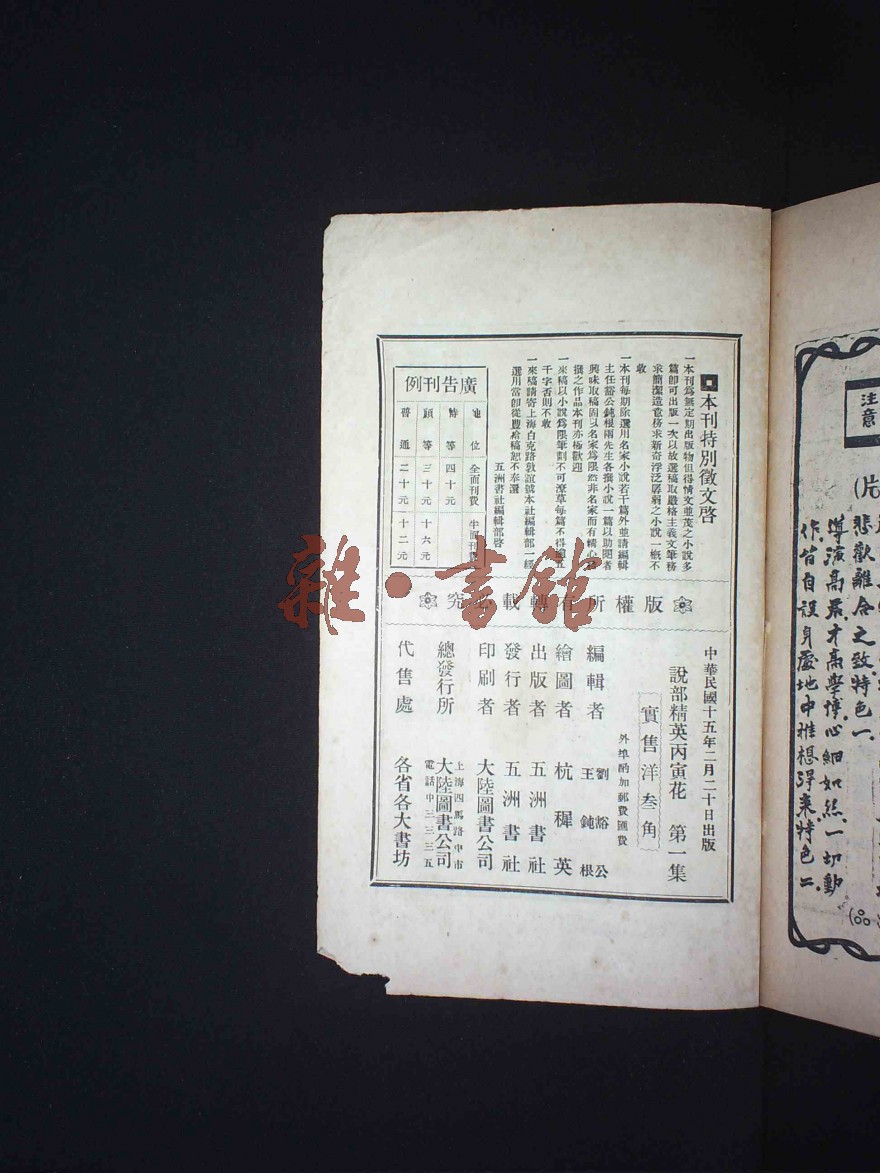 本刊特別徵文啓
一本刊爲無定期出版物但得情文並茂之小說多
篇卽可出版一次以故選稿取嚴格主義文筆務
求簡潔造意務求新奇浮泛孱弱之小說一概不
收
一本刊每期除選用名家小說若干篇外並請編輯
主任豁公鈍根兩先生各撰小說一篇以助閱者
興味取稿固以名家爲限然非名家而有精心
撰之作品本刊亦極歡迎
一來稿以小說爲限筆劃不可潦草每篇不得過五
千字否則不收
一來稿請寄上海白克路敦誼號本社編輯部一經
選用當卽從豐給稿恕不奉還
五洲書社編輯部啓
廣告刊例
地位 全面刊費 半面刊費
特等 四十元
頭等 三十元 十六元
普通 二十元 十二元
版權所有轉載必究
中華民國十五年二月二十日出版
說部精英丙寅花 第一集
實售洋叁角
外埠酌加郵費匯費
編輯者 劉豁公 王鈍根
繪圖者 杭穉英
出版者 五洲書社
發行者 五洲書社
印刷者 大陸圖書公司
總發行所 上海四馬路中市 大陸圖書公司 電話中三三三五
代售處 各省各大書坊
雜·書館
注意
(片
悲歡離合之致特色一
導演高最才高學博心細如絲一切動
作皆自設身處地中推想得來特色二